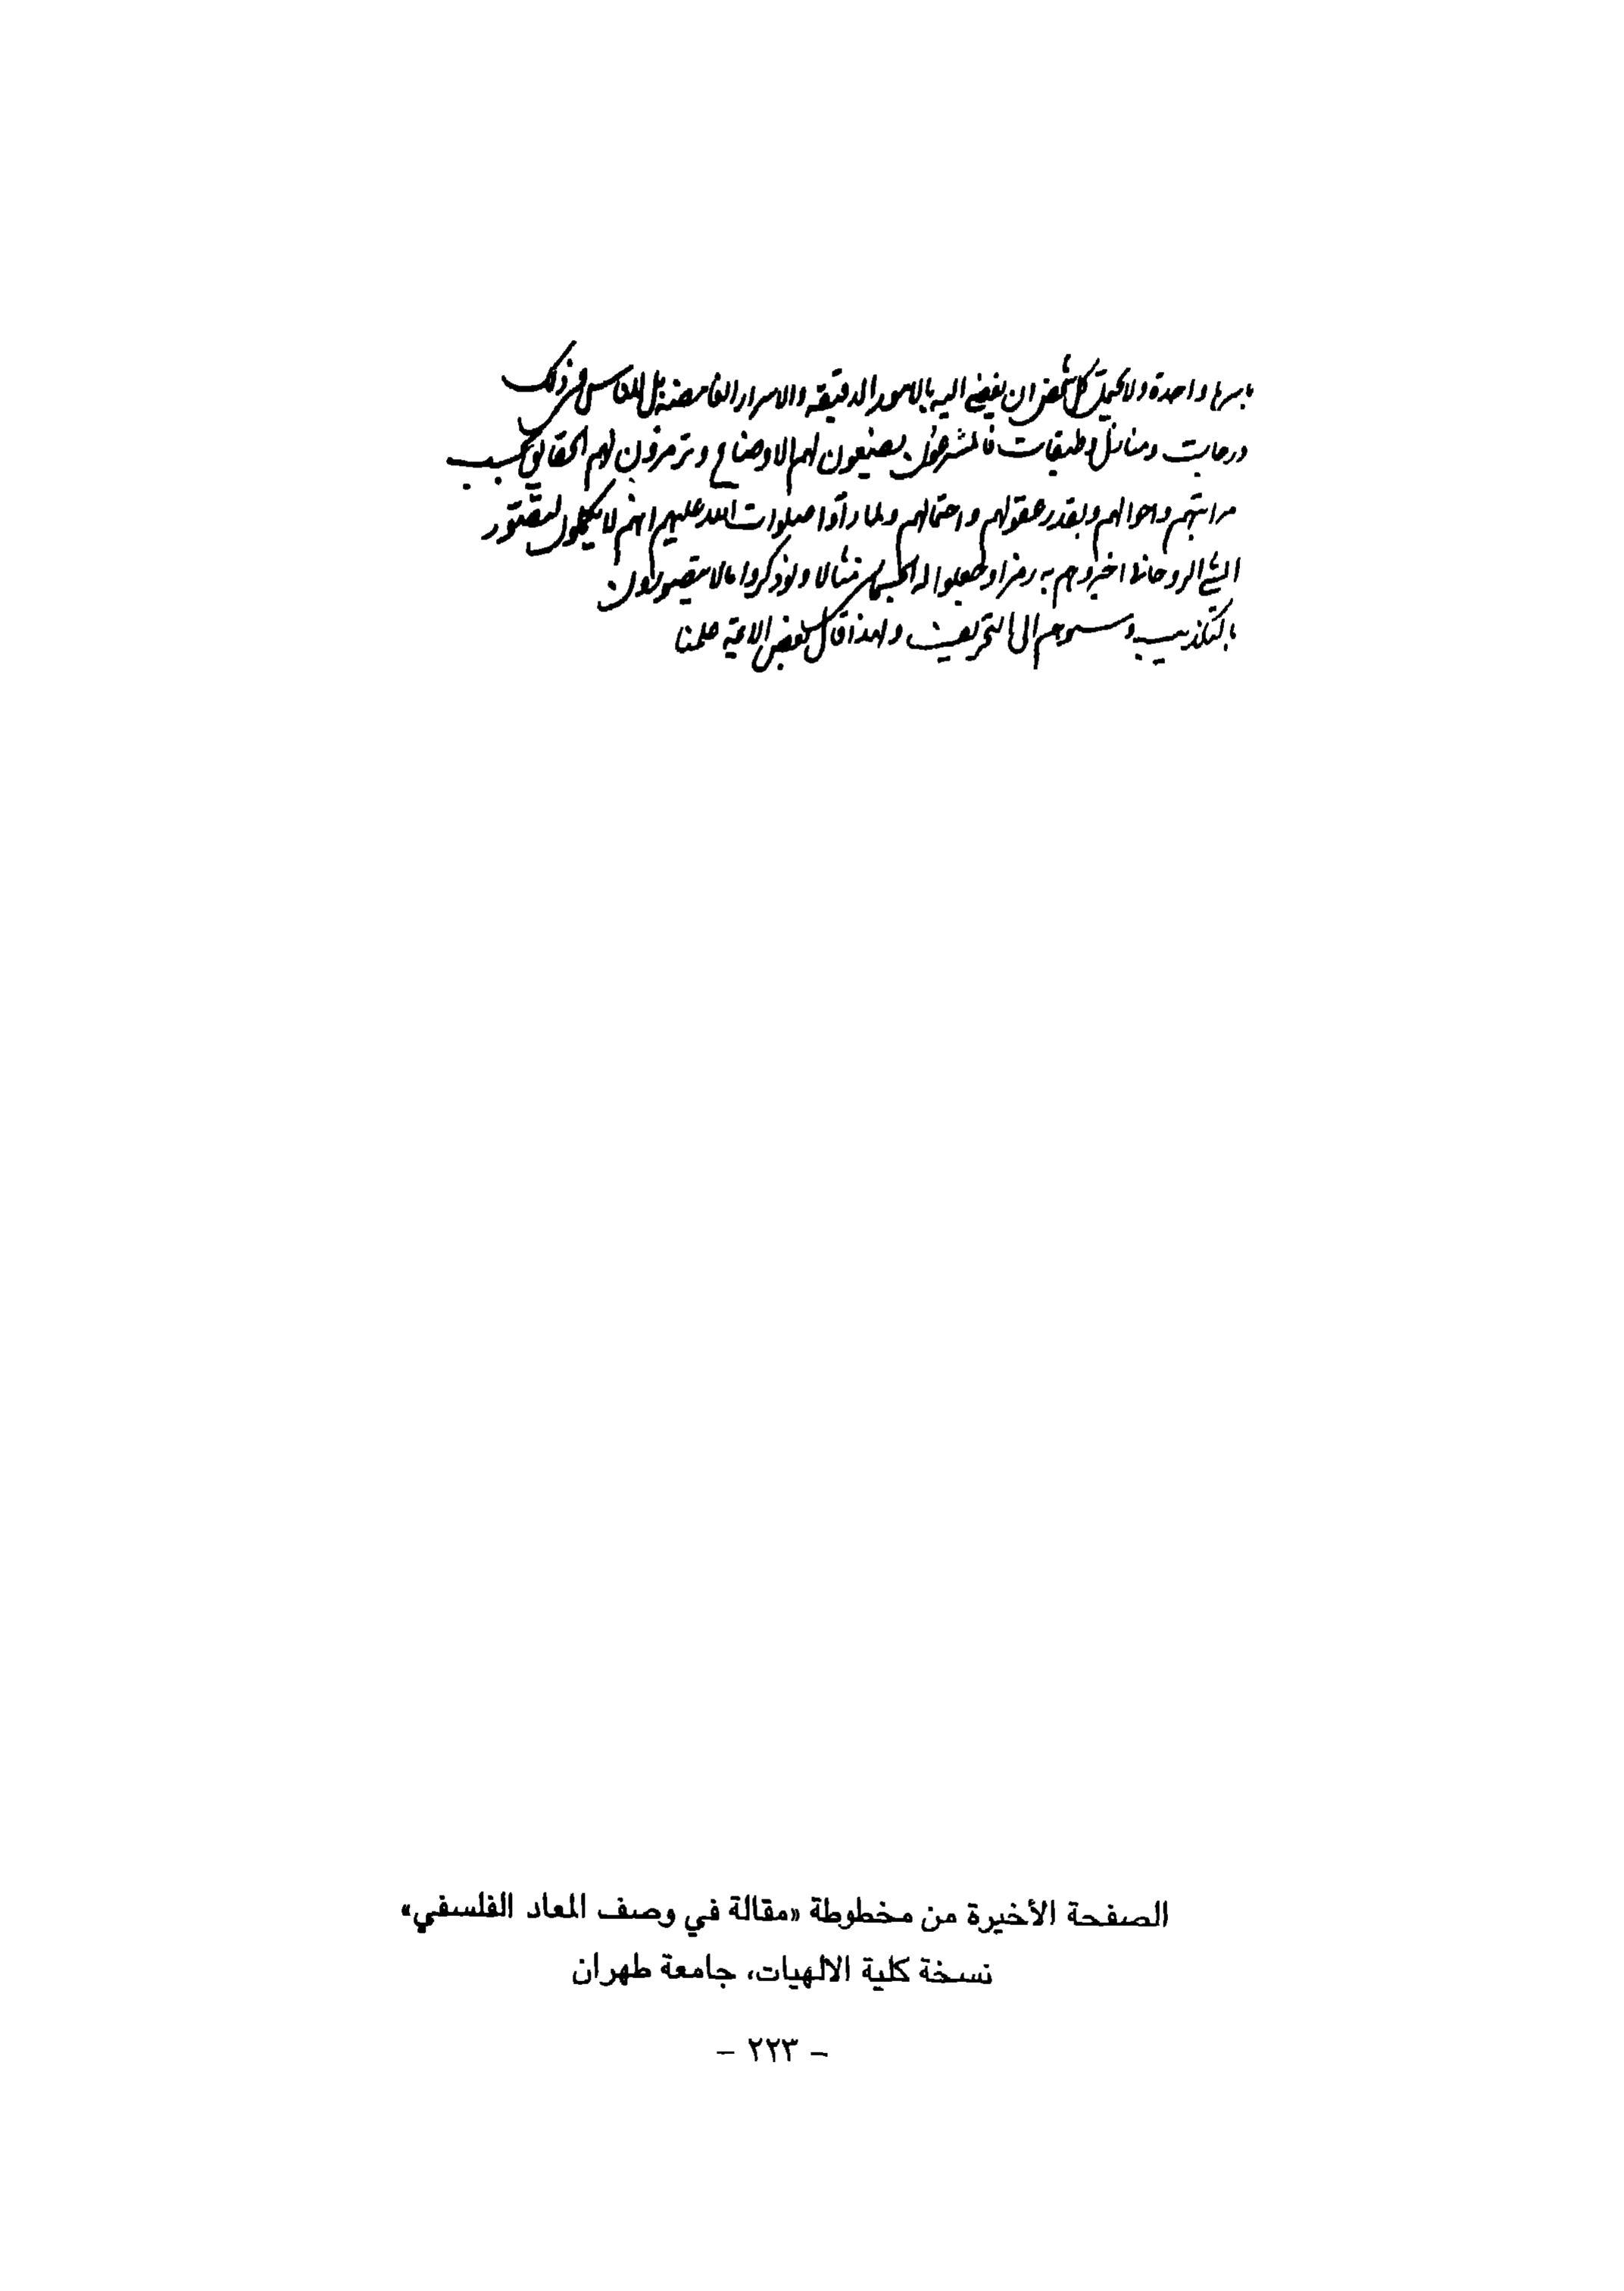 باسرها واحدة ولا يحتمل كل شخص ان يفضى اليه بالامور الدقيقه والاسرار الغامضة بل للناس فى ذلك
درجات ومنازل وطبقات فالمشرعون يصنعون لهم الاوضاع و ترمزون لهم الحقائق بحسب
مراتبهم واحوالهم وبقدر عقولهم واحتمالهم ولما رأوا صلوات الله عليهم انهم لا يكملون لتصور
الشئ الروحانى اخبروهم به رمزا وجعلوا له مثالا ولو ذكروا مالا يتصورون
بالتكذيب الى التحريف ولهذا قال بعض الائمة علمنا
الصفحة الأخيرة من مخطوطة «مقالة في وصف المعاد الفلسفي»
نسخة كلية الالهيات، جامعة طهران
– ٢٢٣ –